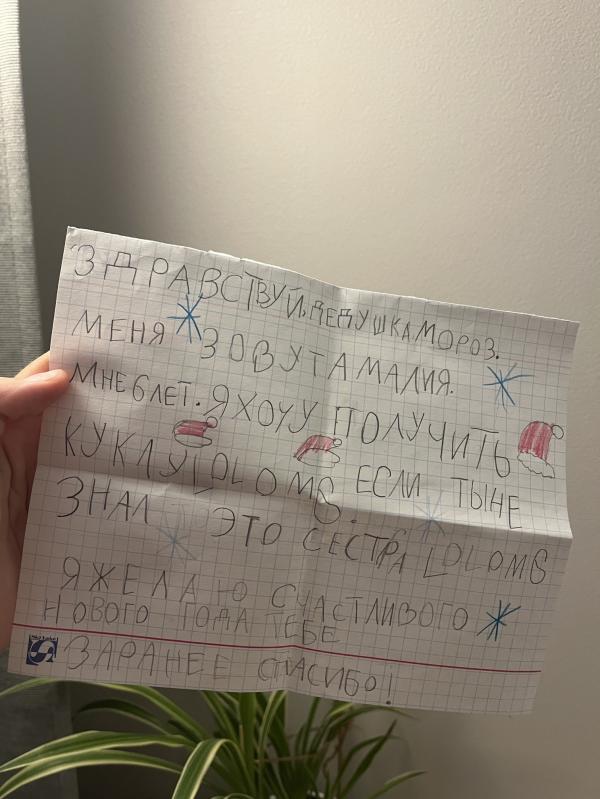 ЗДРАВСТВУЙ, ДЕДУШКА МОРОЗ.
МЕНЯ ЗОВУТ АМАЛИЯ.
МНЕ 6 ЛЕТ. Я ХОЧУ ПОЛУЧИТЬ
КУКЛУ LOL OMG. ЕСЛИ ТЫ НЕ
ЗНАЛ ЭТО СЕСТРА LOL OMG
Я ЖЕЛАЮ СЧАСТЛИВОГО
НОВОГО ГОДА ТЕБЕ
ЗАРАНЕЕ СПАСИБО!